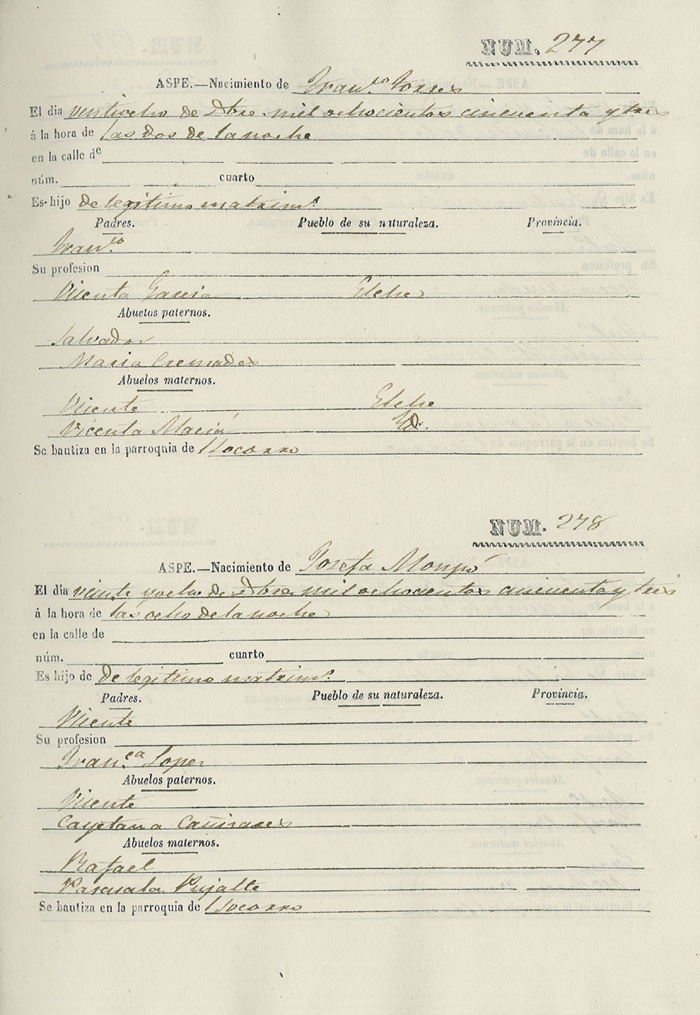 NUM. 277
ASPE.—Nacimiento de Fran.co Torres
El dia veinticho de Dbre. mil ochocientos cincuenta y tres
á la hora de las dos de la noche
en la calle de
núm. cuarto
Es hijo de legitimo matrim.o
Padres. Pueblo de su naturaleza. Provincia.
Fran.co
Su profesion
Vicenta Garcia Elche
Abuelos paternos.
Salvador
Maria Cremades
Abuelos maternos.
Vicente Elche
Vicenta Maciá Yd.
Se bautiza en la parroquia de Socorro
NUM. 278
ASPE.—Nacimiento de Josefa Mompó
El dia veinte y ocho de Dbre. mil ochocientos cincuenta y tres
á la hora de las ocho de la noche
en la calle de
núm. cuarto
Es hijo de de legitimo matrim.o
Padres. Pueblo de su naturaleza. Provincia.
Vicente
Su profesion
Fran.ca Lopez
Abuelos paternos.
Vicente
Cayetana Cañizares
Abuelos maternos.
Rafael
Pascuala Pujalte
Se bautiza en la parroquia de Socorro